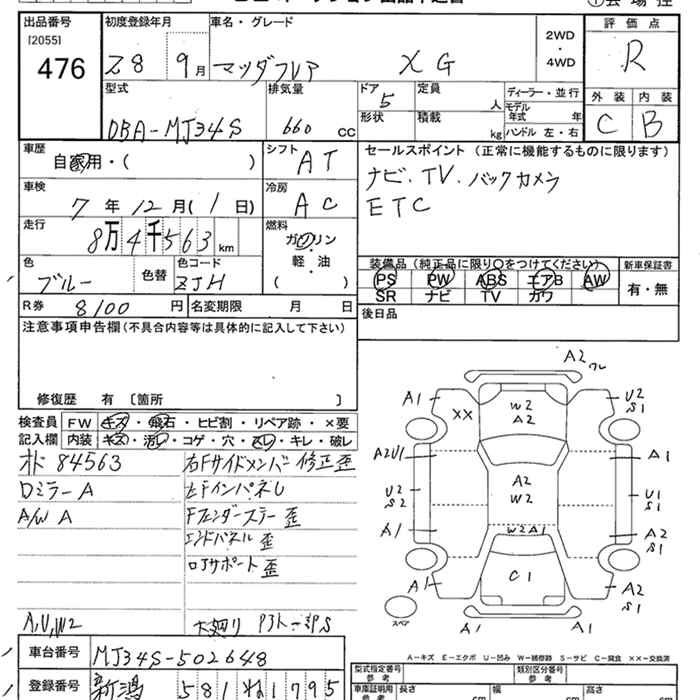 出品番号 初度登録年月 車名・グレード 2WD・4WD 評価点
[2055]
476 28 9月 マツダフレア XG R
型式 排気量 ドア 定員 人 ディーラー・並行 外装 内装
DBA-MJ34S 660 CC 5 モデル年式 年 C B
形状 積載 kg ハンドル 左・右
車歴 自家用・( ) シフト AT セールスポイント(正常に機能するものに限ります)
車検 7年12月(1日) 冷房 AC ナビ.TV.バックカメラ
ETC
走行 8万4千563km 燃料 ガソリン・軽・油 ( )
色 ブルー 色替 色コード ZJH
装備品(純正品に限り○をつけてください) 新車保証書
PS PW ABS エアB AW 有・無
SR ナビ TV カワ
R券 8100円 名変期限 月 日 後日品
注意事項申告欄(不具合内容等は具体的に記入して下さい)
修復歴 有〔箇所 〕
検査員 FW キズ・飛石・ヒビ割・リペア跡・×要
記入欄 内装 キズ・汚レ・コゲ・穴・スレ・キレ・破レ
84563 右Fサイドメンバー修正歪
ロミラーA 左FインパネU
A/W A Fフェンダーステー歪
エンドパネル歪
ロアサポート歪
A,U,W2
A2
A1 XX W2 A2 U2 S1
A2U1 A1
U2 S2 A2 W2 U1 S1
A1 W2A1 A2 S1
A1 C1 A2 S1
スペア A1 A1
A-キズ E-エクボ U-凹み W-補修跡 S-サビ C-腐食 XX-交換済
車台番号 MJ34S-502648 型式指定番号 参考 類別区分番号 参考
登録番号 新潟 581 ね1795 車庫証明用 参考 長さ cm 幅 cm 高さ cm